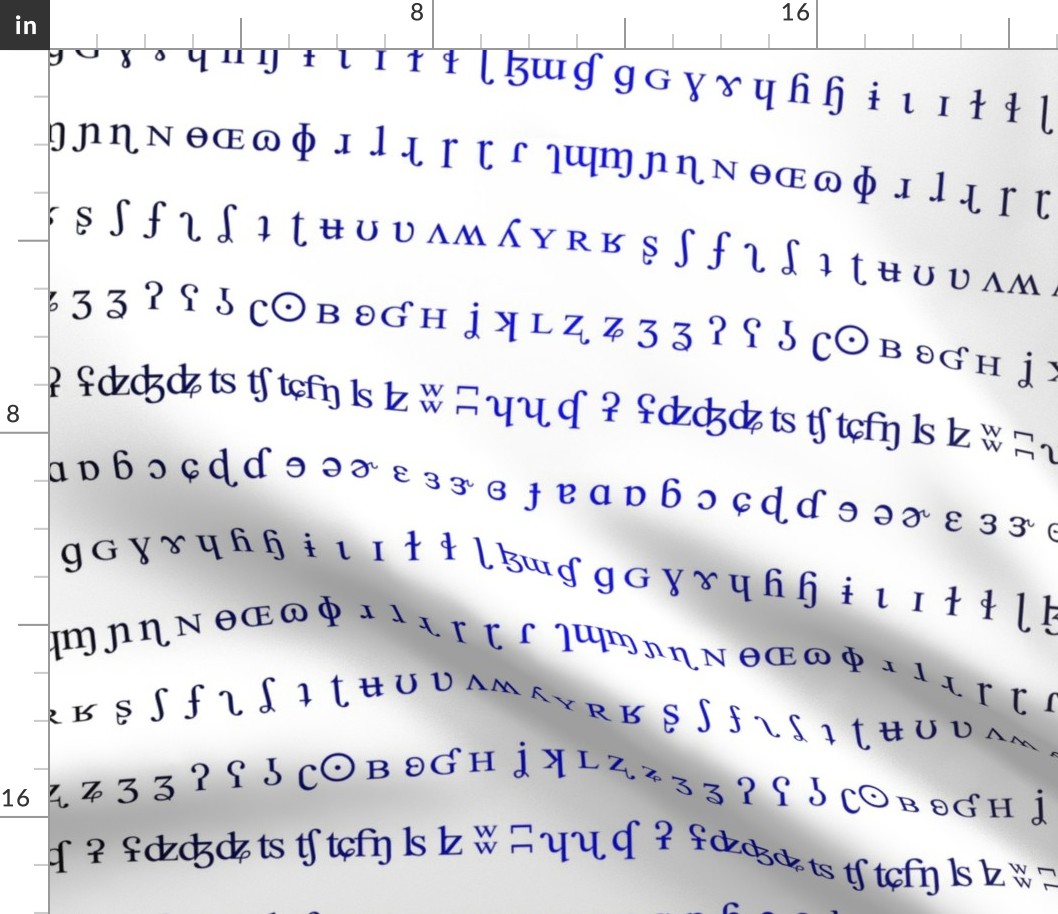 ɡ ɢ ɣ ɤ ɥ ɦ ɧ ɨ ɩ ɪ ɫ ɬ ɭ ɮ ɯ ɠ ɡ ɢ ɣ ɤ ɥ ɦ ɧ ɨ ɩ ɪ ɫ ɬ ɭ
ɱ ɲ ɳ ɴ ɵ ɶ ɷ ɸ ɹ ɺ ɻ ɼ ɽ ɾ ɿ ɰ ɱ ɲ ɳ ɴ ɵ ɶ ɷ ɸ ɹ ɺ ɻ ɼ ɽ
ʂ ʃ ʄ ʅ ʆ ʇ ʈ ʉ ʊ ʋ ʌ ʍ ʎ ʏ ʀ ʁ ʂ ʃ ʄ ʅ ʆ ʇ ʈ ʉ ʊ ʋ ʌ ʍ
ʒ ʓ ʔ ʕ ʖ ʗ ʘ ʙ ʚ ʛ ʜ ʝ ʞ ʟ ʐ ʑ ʒ ʓ ʔ ʕ ʖ ʗ ʘ ʙ ʚ ʛ ʜ ʝ
ʡ ʢ ʣ ʤ ʥ ʦ ʧ ʨ ʩ ʪ ʫ ʬ ʭ ʮ ʯ ʠ ʡ ʢ ʣ ʤ ʥ ʦ ʧ ʨ ʩ ʪ ʫ ʬ ʭ
ɑ ɒ ɓ ɔ ɕ ɖ ɗ ɘ ə ɚ ɛ ɜ ɝ ɞ ɟ ɐ ɑ ɒ ɓ ɔ ɕ ɖ ɗ ɘ ə ɚ ɛ ɜ ɝ ɞ
ɡ ɢ ɣ ɤ ɥ ɦ ɧ ɨ ɩ ɪ ɫ ɬ ɭ ɮ ɯ ɠ ɡ ɢ ɣ ɤ ɥ ɦ ɧ ɨ ɩ ɪ ɫ ɬ ɭ ɮ
ɰ ɱ ɲ ɳ ɴ ɵ ɶ ɷ ɸ ɹ ɺ ɻ ɼ ɽ ɾ ɿ ɰ ɱ ɲ ɳ ɴ ɵ ɶ ɷ ɸ ɹ ɺ ɻ ɼ ɽ ɾ
ʀ ʁ ʂ ʃ ʄ ʅ ʆ ʇ ʈ ʉ ʊ ʋ ʌ ʍ ʎ ʏ ʀ ʁ ʂ ʃ ʄ ʅ ʆ ʇ ʈ ʉ ʊ ʋ ʌ ʍ
ʐ ʑ ʒ ʓ ʔ ʕ ʖ ʗ ʘ ʙ ʚ ʛ ʜ ʝ ʞ ʟ ʐ ʑ ʒ ʓ ʔ ʕ ʖ ʗ ʘ ʙ ʚ ʛ ʜ ʝ
ʠ ʡ ʢ ʣ ʤ ʥ ʦ ʧ ʨ ʩ ʪ ʫ ʬ ʭ ʮ ʯ ʠ ʡ ʢ ʣ ʤ ʥ ʦ ʧ ʨ ʩ ʪ ʫ ʬ ʭ
in
8
16
8
16